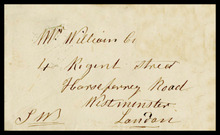 Mr William Co
Regent Street
Horseferry Road
Westminster
London
S W